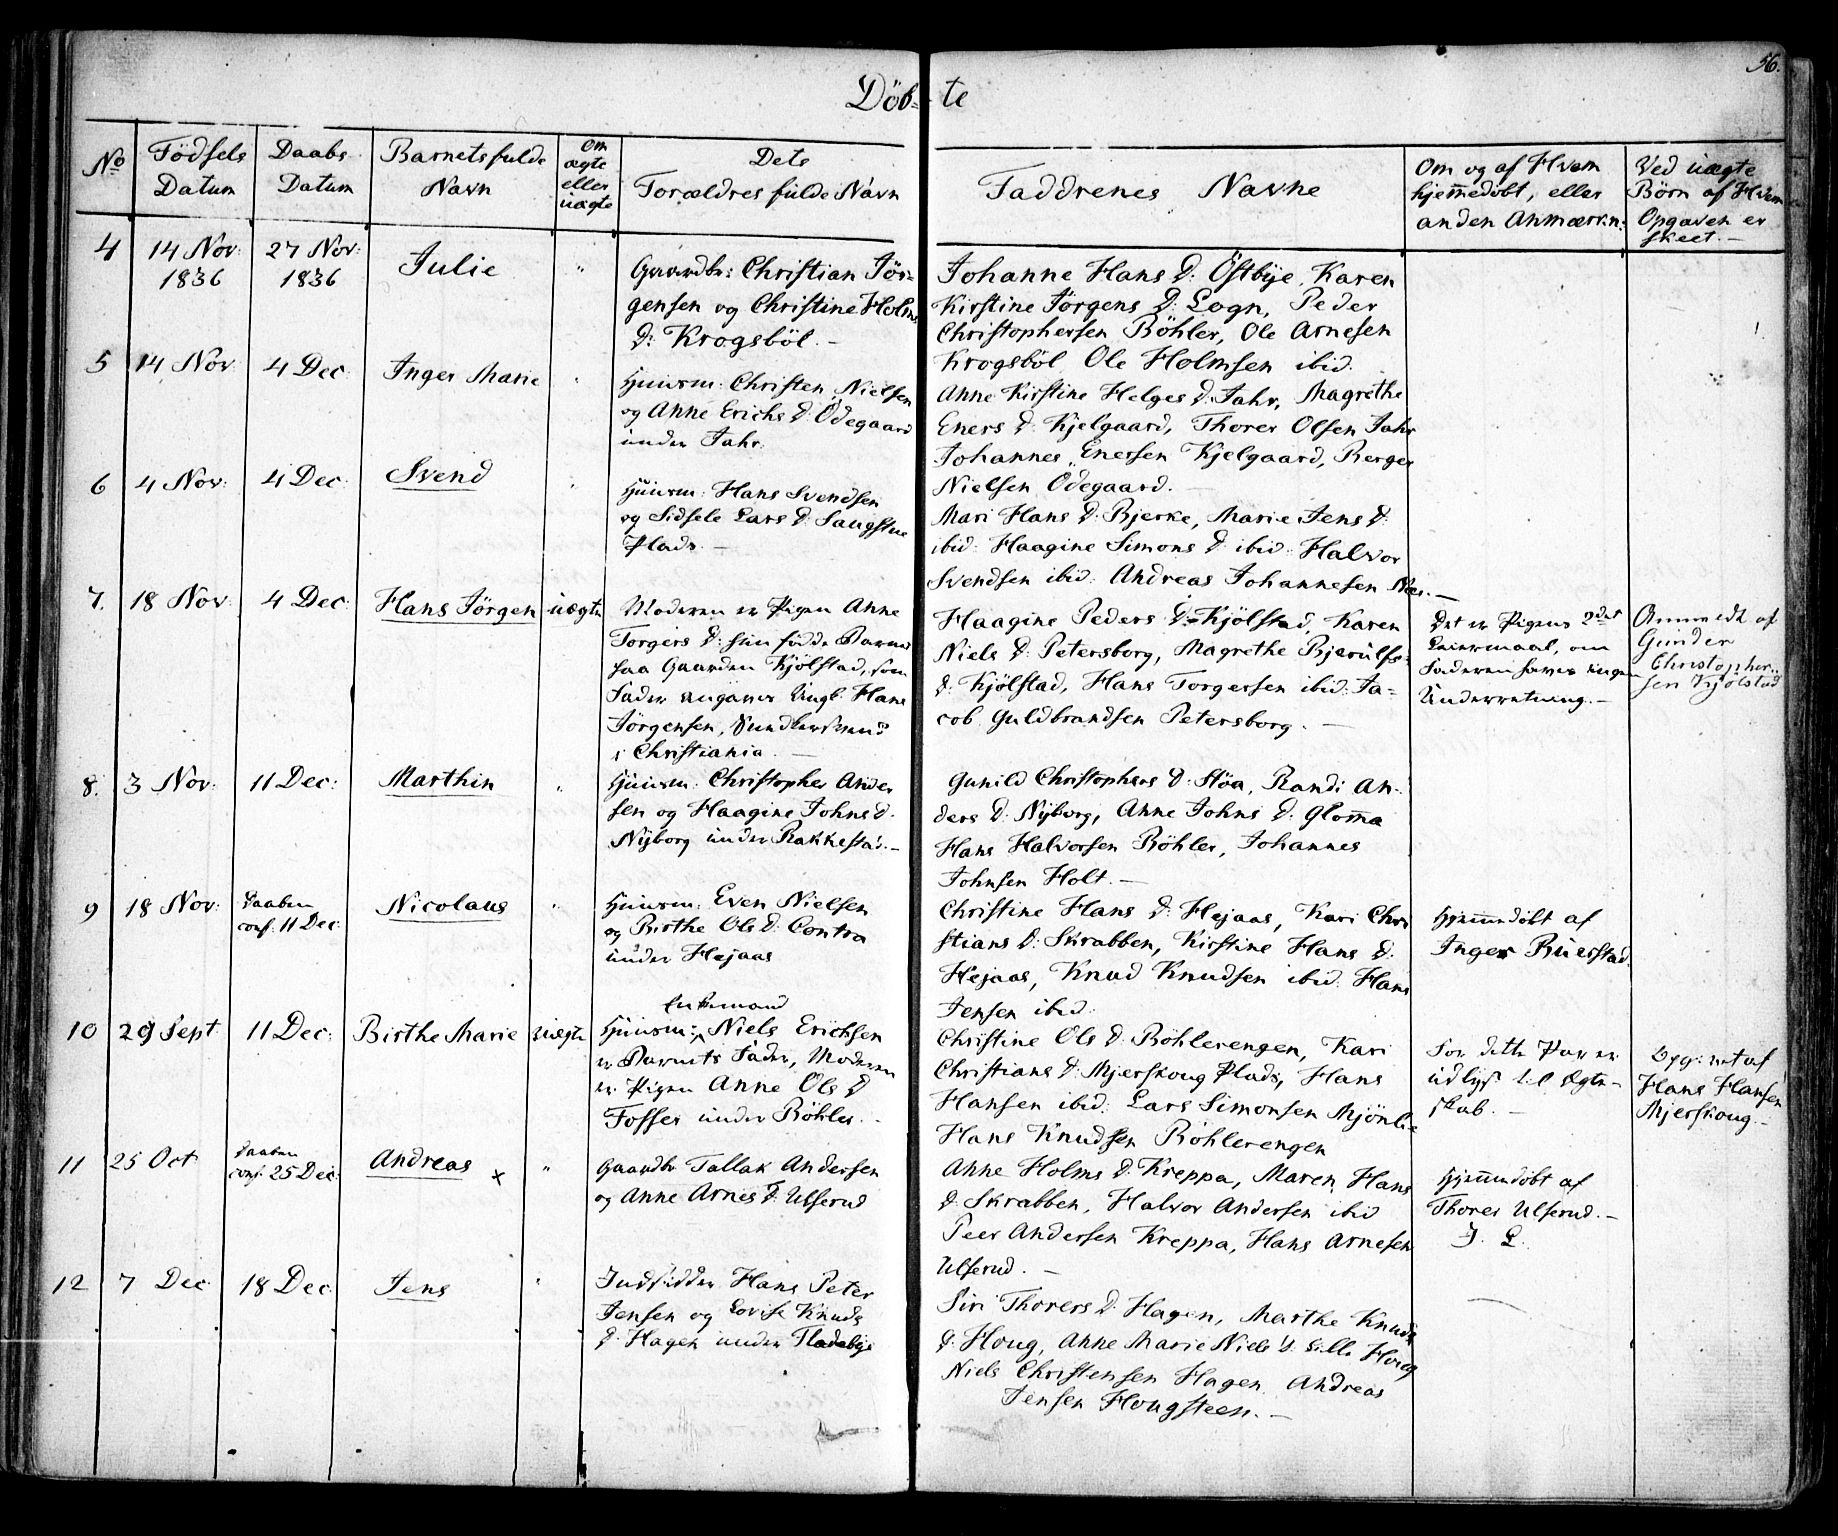 56.
Döb- te
No
Födsels Datum
Daabs Datum
Barnets fulde Navn
Om ægte eller uægte
Dets Forældres fulde Navn
Faddrenes Navne
Om og af Hvem hjem̄edöbt, eller anden Anmærkn:
Ved uægte Börn af Hvem Opgaven er skeet.—
4
14 Nov: 1836
27 Nov: 1836
Julie
"
Gaardbr: Christian Jör-
gensen og Christine Holms
D: Krogsböl.—
Johanne Hans D: Östbye, Karen
Kirstine Jörgens D: Logn, Peder
Christophersen Böhler, Ole Arnesen
Krogsböl, Ole Holmsen ibid.
5
14 Nov
4 Dec
Inger Marie
"
Huusm: Christen Nielsen
og Anne Erichs D: Ödegaard
under Jahr.
Anne Kirstine Helges D: Jahr, Magrethe
Eners D: Kjelgaard, Thorer Olsen Jahr
Johannes Enersen Kjelgaard, Berger
Nielsen Ödegaard.
6
4 Nov:
4 Dec:
Svend
"
Huusm: Hans Svendsen
og Sidsele Lars D: Saugstue
Plads.—
Mari Hans D: Bjerke, Marie Jens D:
ibid: Haagine Simons D: ibid: Halvor
Svendsen ibid: Andreas Johannesen Næs.—
7.
18 Nov
4 Dec:
Hans Jörgen
uægte
Moderen er Pigen Anne
Torgers D: som födde Barnet
paa Gaarden Kjölstad, som
Fader angaves Ungk. Hans
Jörgensen,
i Christiania.—
Haagine Peders D: Kjölstad, Karen
Niels D: Petersborg, Magrethe Bjerulfs
D: Kjölstad, Hans Torgersen ibid: Ja-
cob Guldbrandsen Petersborg.—
Det er Pigens 2det
Leiermaal, om
Faderen haves ingen
Underretning.—
Anmeldt af
Gunder
Christopher-
sen Kjölstad
8.
3 Nov:
11 Dec:
Marthin
"
Huusm: Christopher Ander
sen og Haagine Johns D.
Nyborg under Rakkestad.—
Gunild Christophers D: Stöa, Randi An-
ders D: Nyborg, Anne Johns D: Glom̄a
Hans Halvorsen Böhler, Johannes
Johnsen Holt.—
9
18 Nov:
Daaben
conf: 11 Dec:
Nicolaus
"
Huusm: Even Nielsen
og Birthe Ols D: Contra
under Hejaas
Christine Hans D: Hejaas, Kari Chri
stians D: Skrabben, Kirstine Hans D.
Hejaas, Knud Knudsen ibid: Hans
Jensen ibid.
Hjemmedöbt af
Inger Buerstad.
10
29 Sept
11 Dec:
Birthe Marie
uægte
Enkemand
Huusm: Niels Erichsen
er Barnets Fader, Moderen
er Pigen Anne Ols D
Fosser under Böhler.—
Christine Ols D: Böhlerengen, Kari
Christians D: Mjerskoug Plads, Hans
Hansen ibid: Lars Simonsen Mjönlie
Hans Knudsen Böhlerengen
For dette Par er
udlyst til Ægte-
skab.—
Opgivet af
Hans Hansen
Mjerskoug.—
11
25 Oct
Daaben
conf: 25 Dec:
Andreas x
"
Gaardbr Tallak Andersen
og Anne Arnes D: Ulserud
Anne Holms D: Kreppa, Maren Hans
D: Skrabben, Halvor Andersen ibid
Peer Andersen Kreppa, Hans Arnesen
Ulserud.—
Hjem̄edöbt af
Thores Ulserud.—
J. L.
12
7 Dec
18 Dec:
Jens
"
Indsidder Hans Peter
Jensen og Lovise Knuds
D: Hagen under Fladebye
Siri Thorers D: Hagen, Marthe Knuds
D: Houg, Anne Marie Niels D: Lille Houg
Niels Christensen Hagen, Andreas
Jensen Hougsteen.—